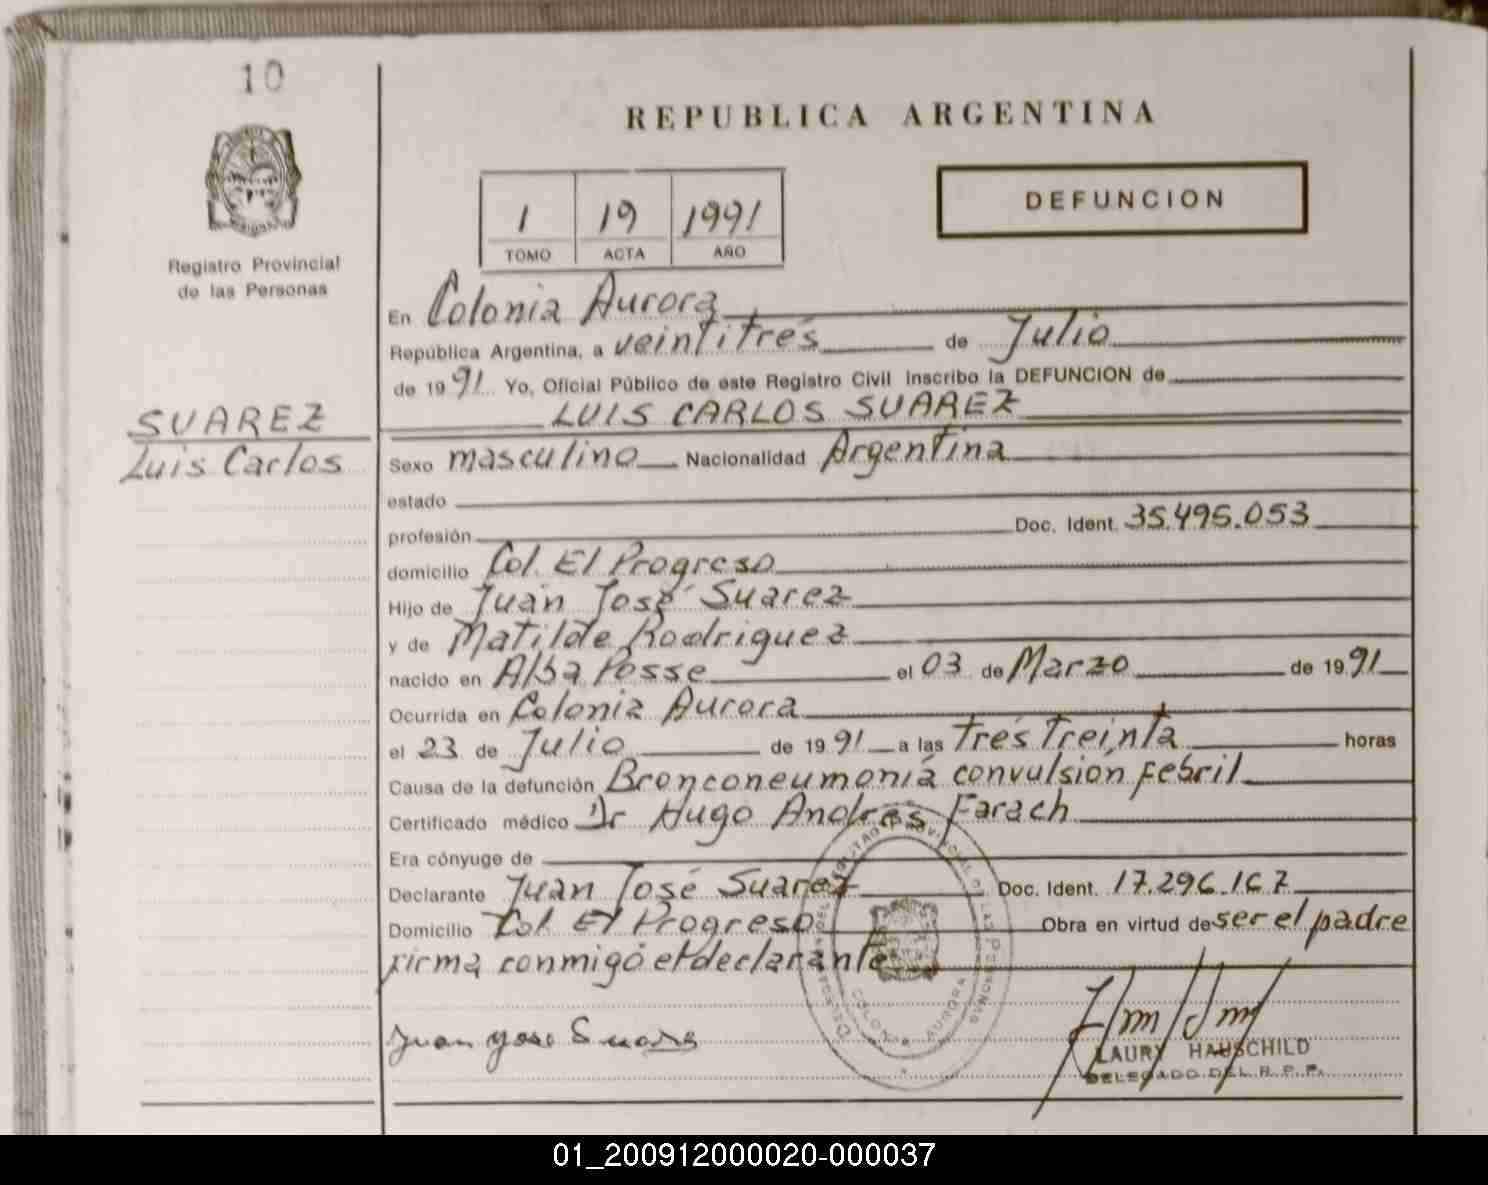 10
REPUBLICA ARGENTINA
1 19 1991
TOMO ACTA AÑO
DEFUNCION
Registro Provincial
de las Personas
SUAREZ
Luis Carlos
En Colonia Aurora
República Argentina, a veintitrés de Julio
de 1991 Yo, Oficial Público de este Registro Civil inscribo la DEFUNCION de
LUIS CARLOS SUAREZ
Sexo masculino Nacionalidad Argentina
estado
profesión Doc. Ident. 35.495.053
domicilio Col. El Progreso
Hijo de Juan José Suarez
y de Matilde Rodriguez
nacido en Alba Posse el 03 de Marzo de 1991
Ocurrida en Colonia Aurora
el 23 de Julio de 1991 a las tres treinta horas
Causa de la defunción Bronconeumonía convulsion febril
Certificado médico Dr Hugo Andrés Farach
Era cónyuge de
Declarante Juan José Suarez Doc. Ident. 17.296.167
Domicilio Col. El Progreso Obra en virtud de ser el padre
firma conmigo el declarante
COLONIA AURORA
Juan Jose Suarez
LAURY HAUSCHILD
DELEGADO DEL R. P. P.
01_200912000020-000037